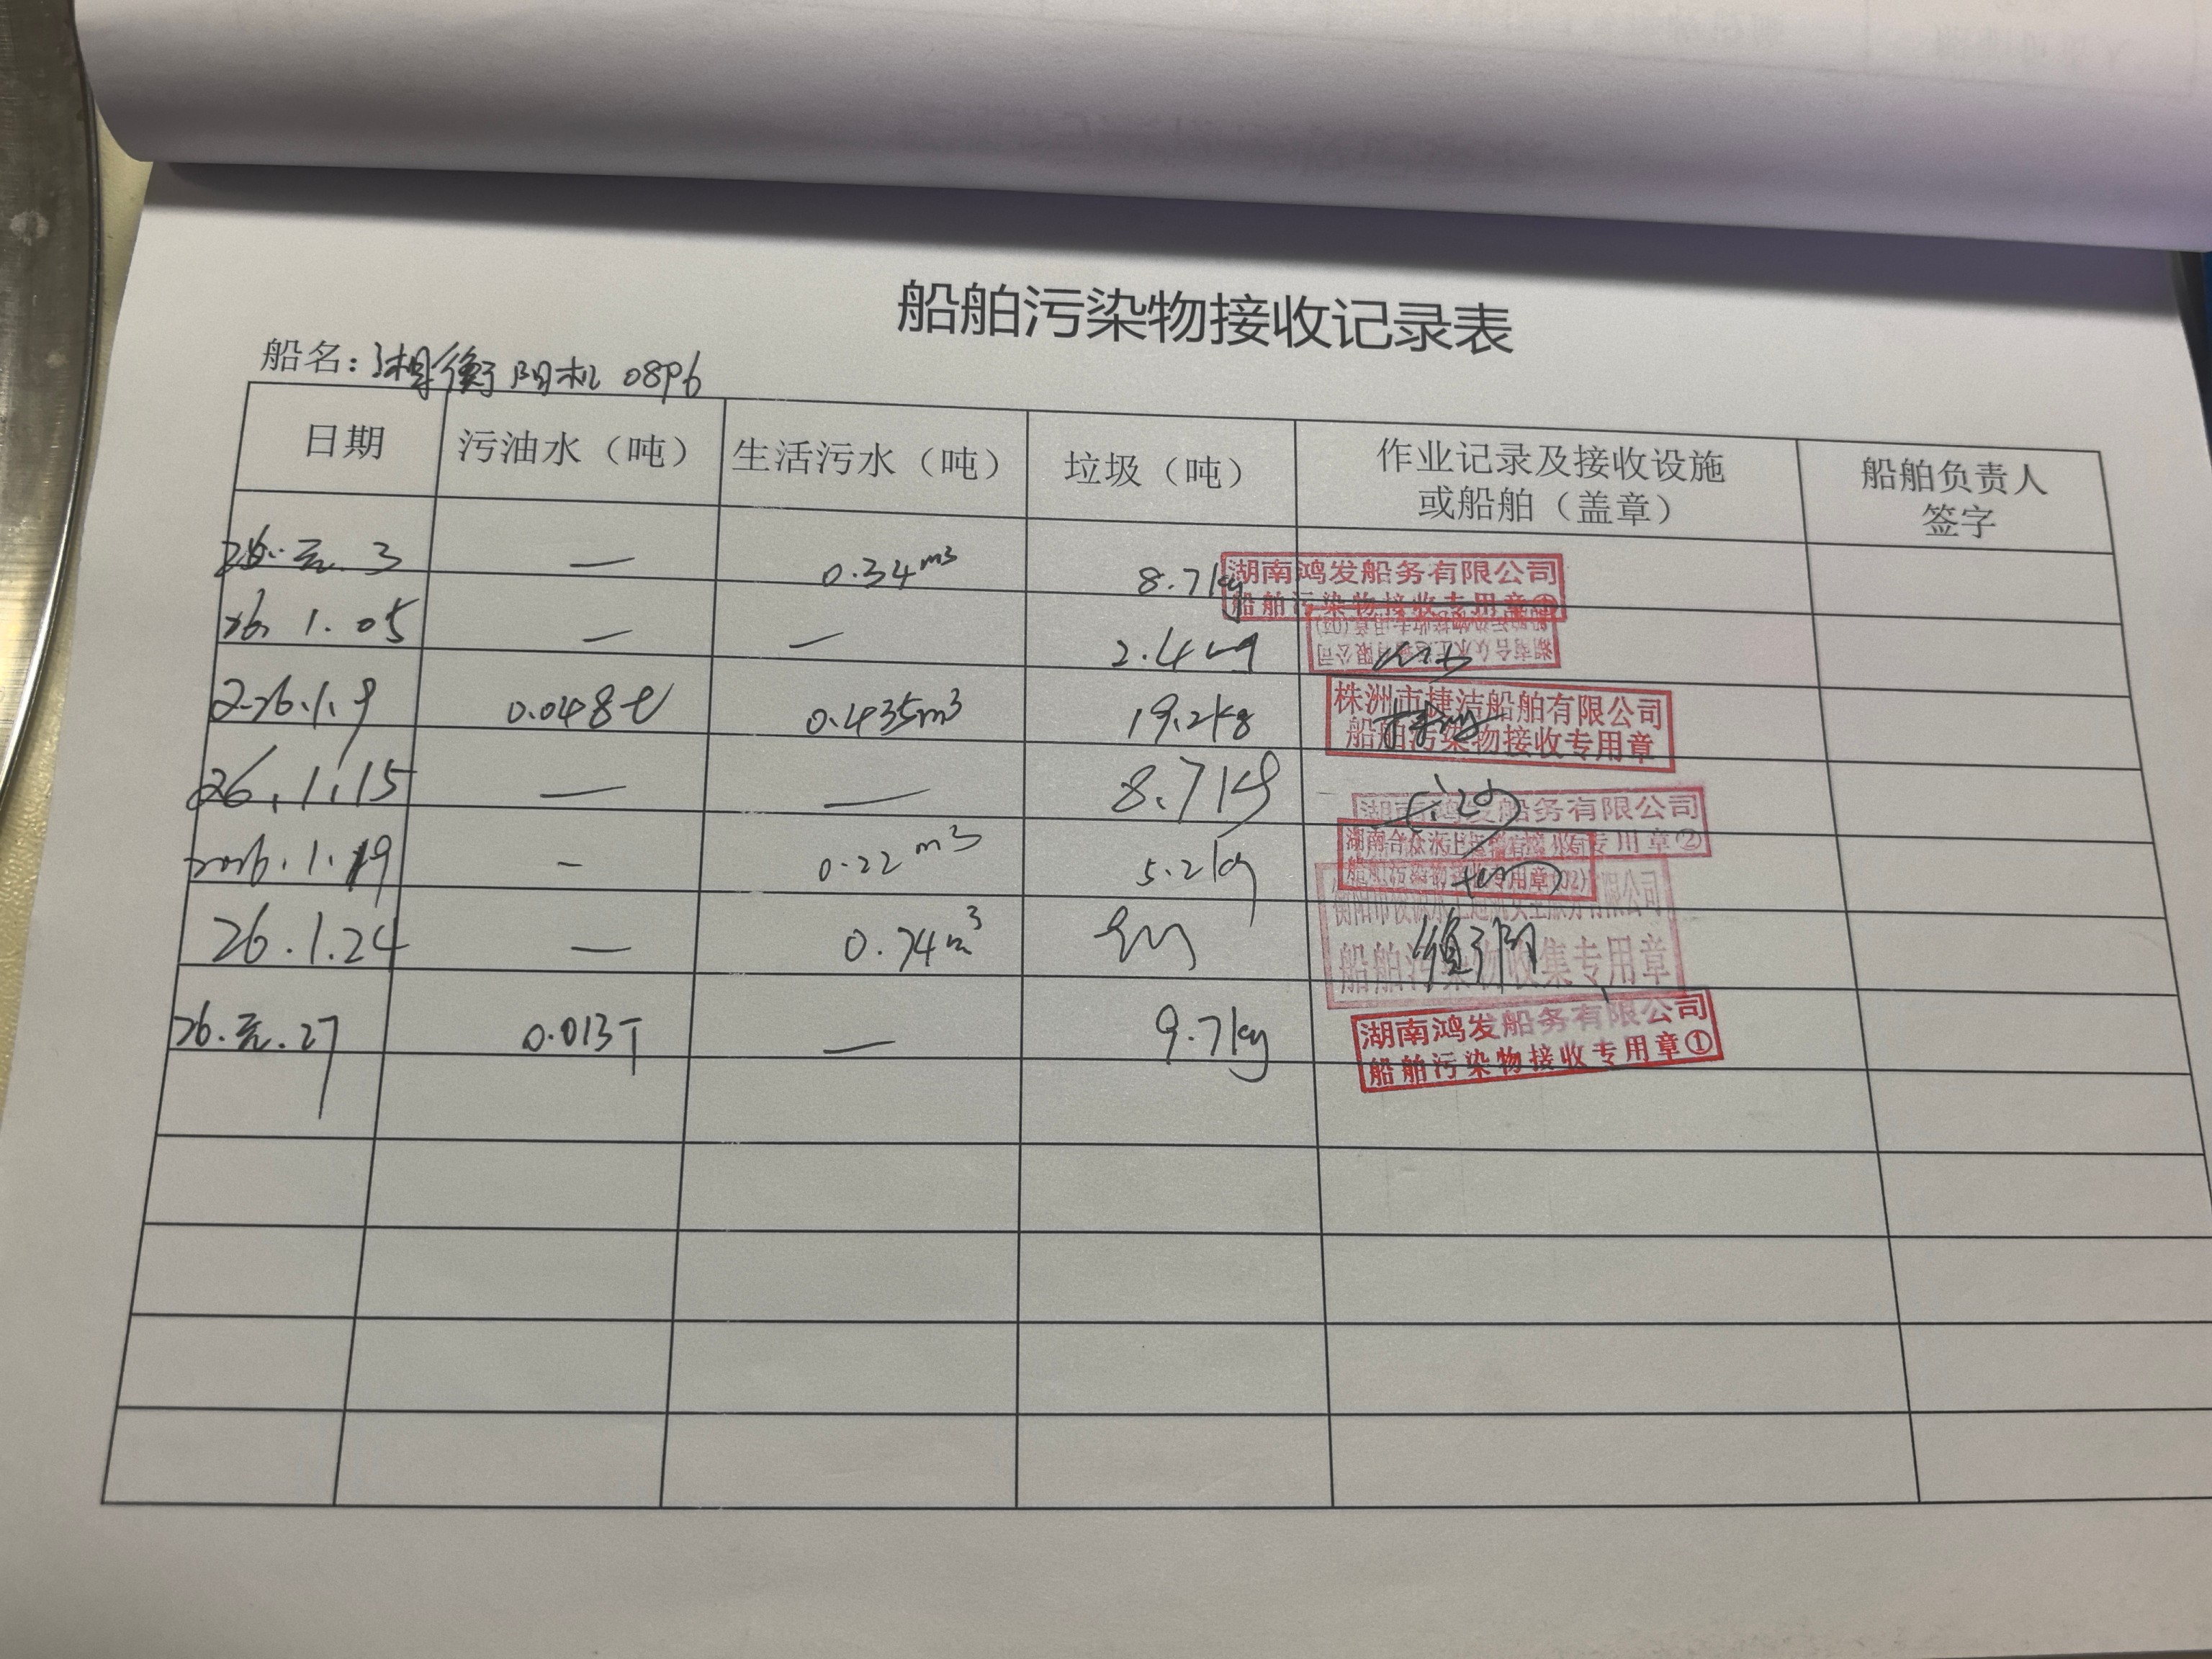 船舶污染物接收记录表
船名：湘衡阳机 0896
日期 污油水（吨） 生活污水（吨） 垃圾（吨） 作业记录及接收设施或船舶（盖章） 船舶负责人签字
26.元.3 — 0.34m³ 8.7kg 湖南鸿发船务有限公司
船舶污染物接收专用章
26.1.05 — — 2.4kg
2026.1.9 0.048t 0.435m³ 19.2kg 株洲市捷洁船舶有限公司
船舶污染物接收专用章
26.1.15 — — 8.7kg 湖南鸿发船务有限公司
专用章②
2026.1.19 - 0.22m³ 5.2kg 湖南合众水上
船舶污染物接收专用章(02)
26.1.24 — 0.74m³
船舶污染物收集专用章
26.元.27 0.013T — 9.7kg 湖南鸿发船务有限公司
船舶污染物接收专用章①